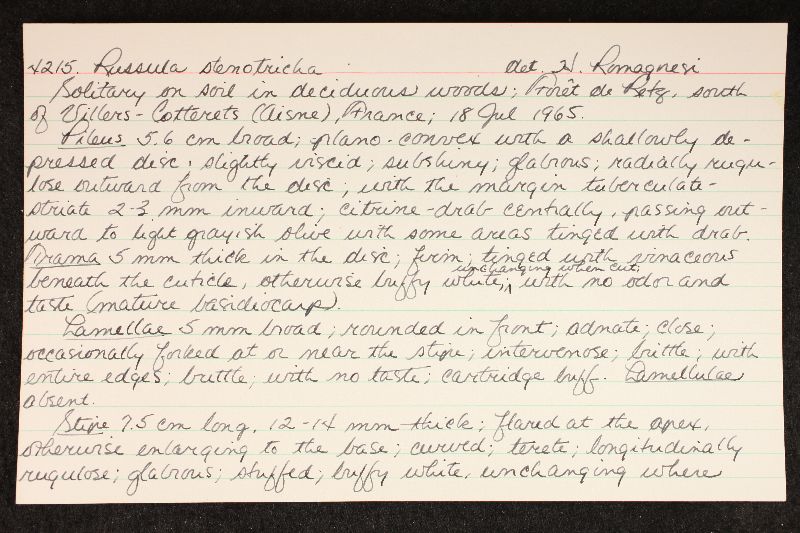 4215. Russula stenotricha det. H. Romagnesi
Solitary on soil in deciduous woods; Forêt de Retz, south
of Villers-Cotterets (Aisne), France; 18 Jul 1965.
Pileus 5.6 cm broad; plano-convex with a shallowly de-
pressed disc; slightly viscid; subshiny; glabrous; radially rugu-
lose outward from the disc; with the margin tuberculate-
striate 2-3 mm inward; citrine-drab centrally, passing out-
ward to light grayish olive with some areas tinged with drab.
Trama 5 mm thick in the disc; firm; tinged with vinaceous
beneath the cuticle, otherwise buffy white; unchanging when cut; with no odor and
taste (mature basidiocarp).
Lamellae 5 mm broad; rounded in front; adnate; close;
occasionally forked at or near the stipe; intervenose; brittle; with
entire edges; brittle; with no taste; cartridge buff. Lamellulae
absent.
Stipe 7.5 cm long, 12-14 mm thick; flared at the apex,
otherwise enlarging to the base; curved; terete; longitudinally
rugulose; glabrous; stuffed; buffy white, unchanging where